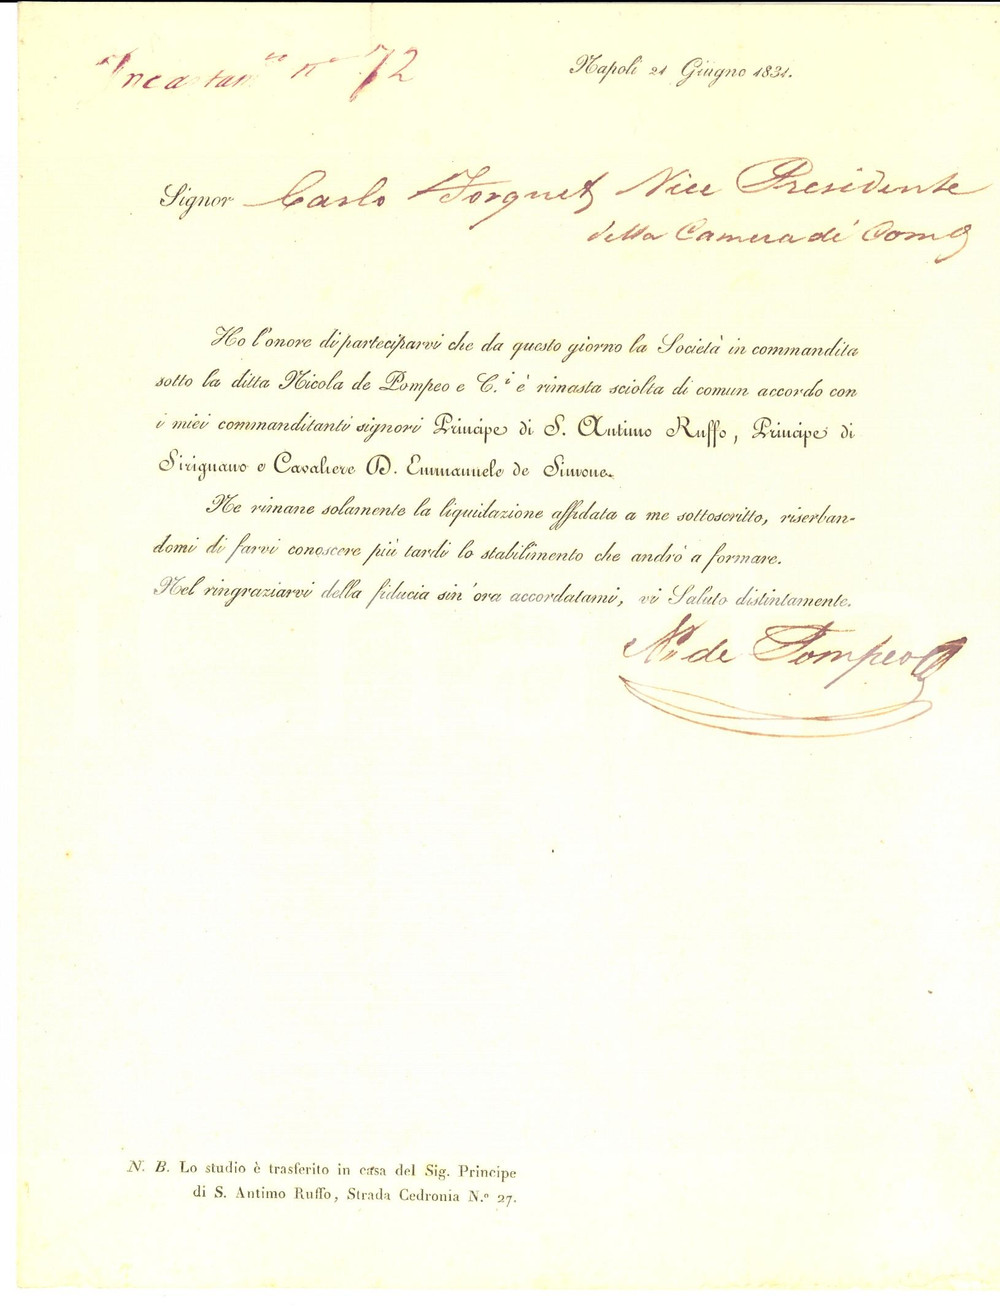 nº 72
Napoli 21 Giugno 1831.
Signor Carlo Forquet Vice Presidente
della Camera di Com
Ho l'onore di parteciparvi che da questo giorno la Società in commandita
sotto la ditta Nicola de Pompeo e C.i è rimasta sciolta di comun accordo con
i miei commanditanti signori Principe di S. Antimo Ruffo, Principe di
Sirignano e Cavaliere D. Emmanuele de Simone.
Ne rimane solamente la liquidazione affidata a me sottoscritto, riserban-
domi di farvi conoscere più tardi lo stabilimento che andrò a formare.
Nel ringraziarvi della fiducia sin'ora accordatami, vi Saluto distintamente.
Na de Pompeo
N. B. Lo studio è trasferito in casa del Sig. Principe
di S. Antimo Ruffo, Strada Cedronia N.º 27.